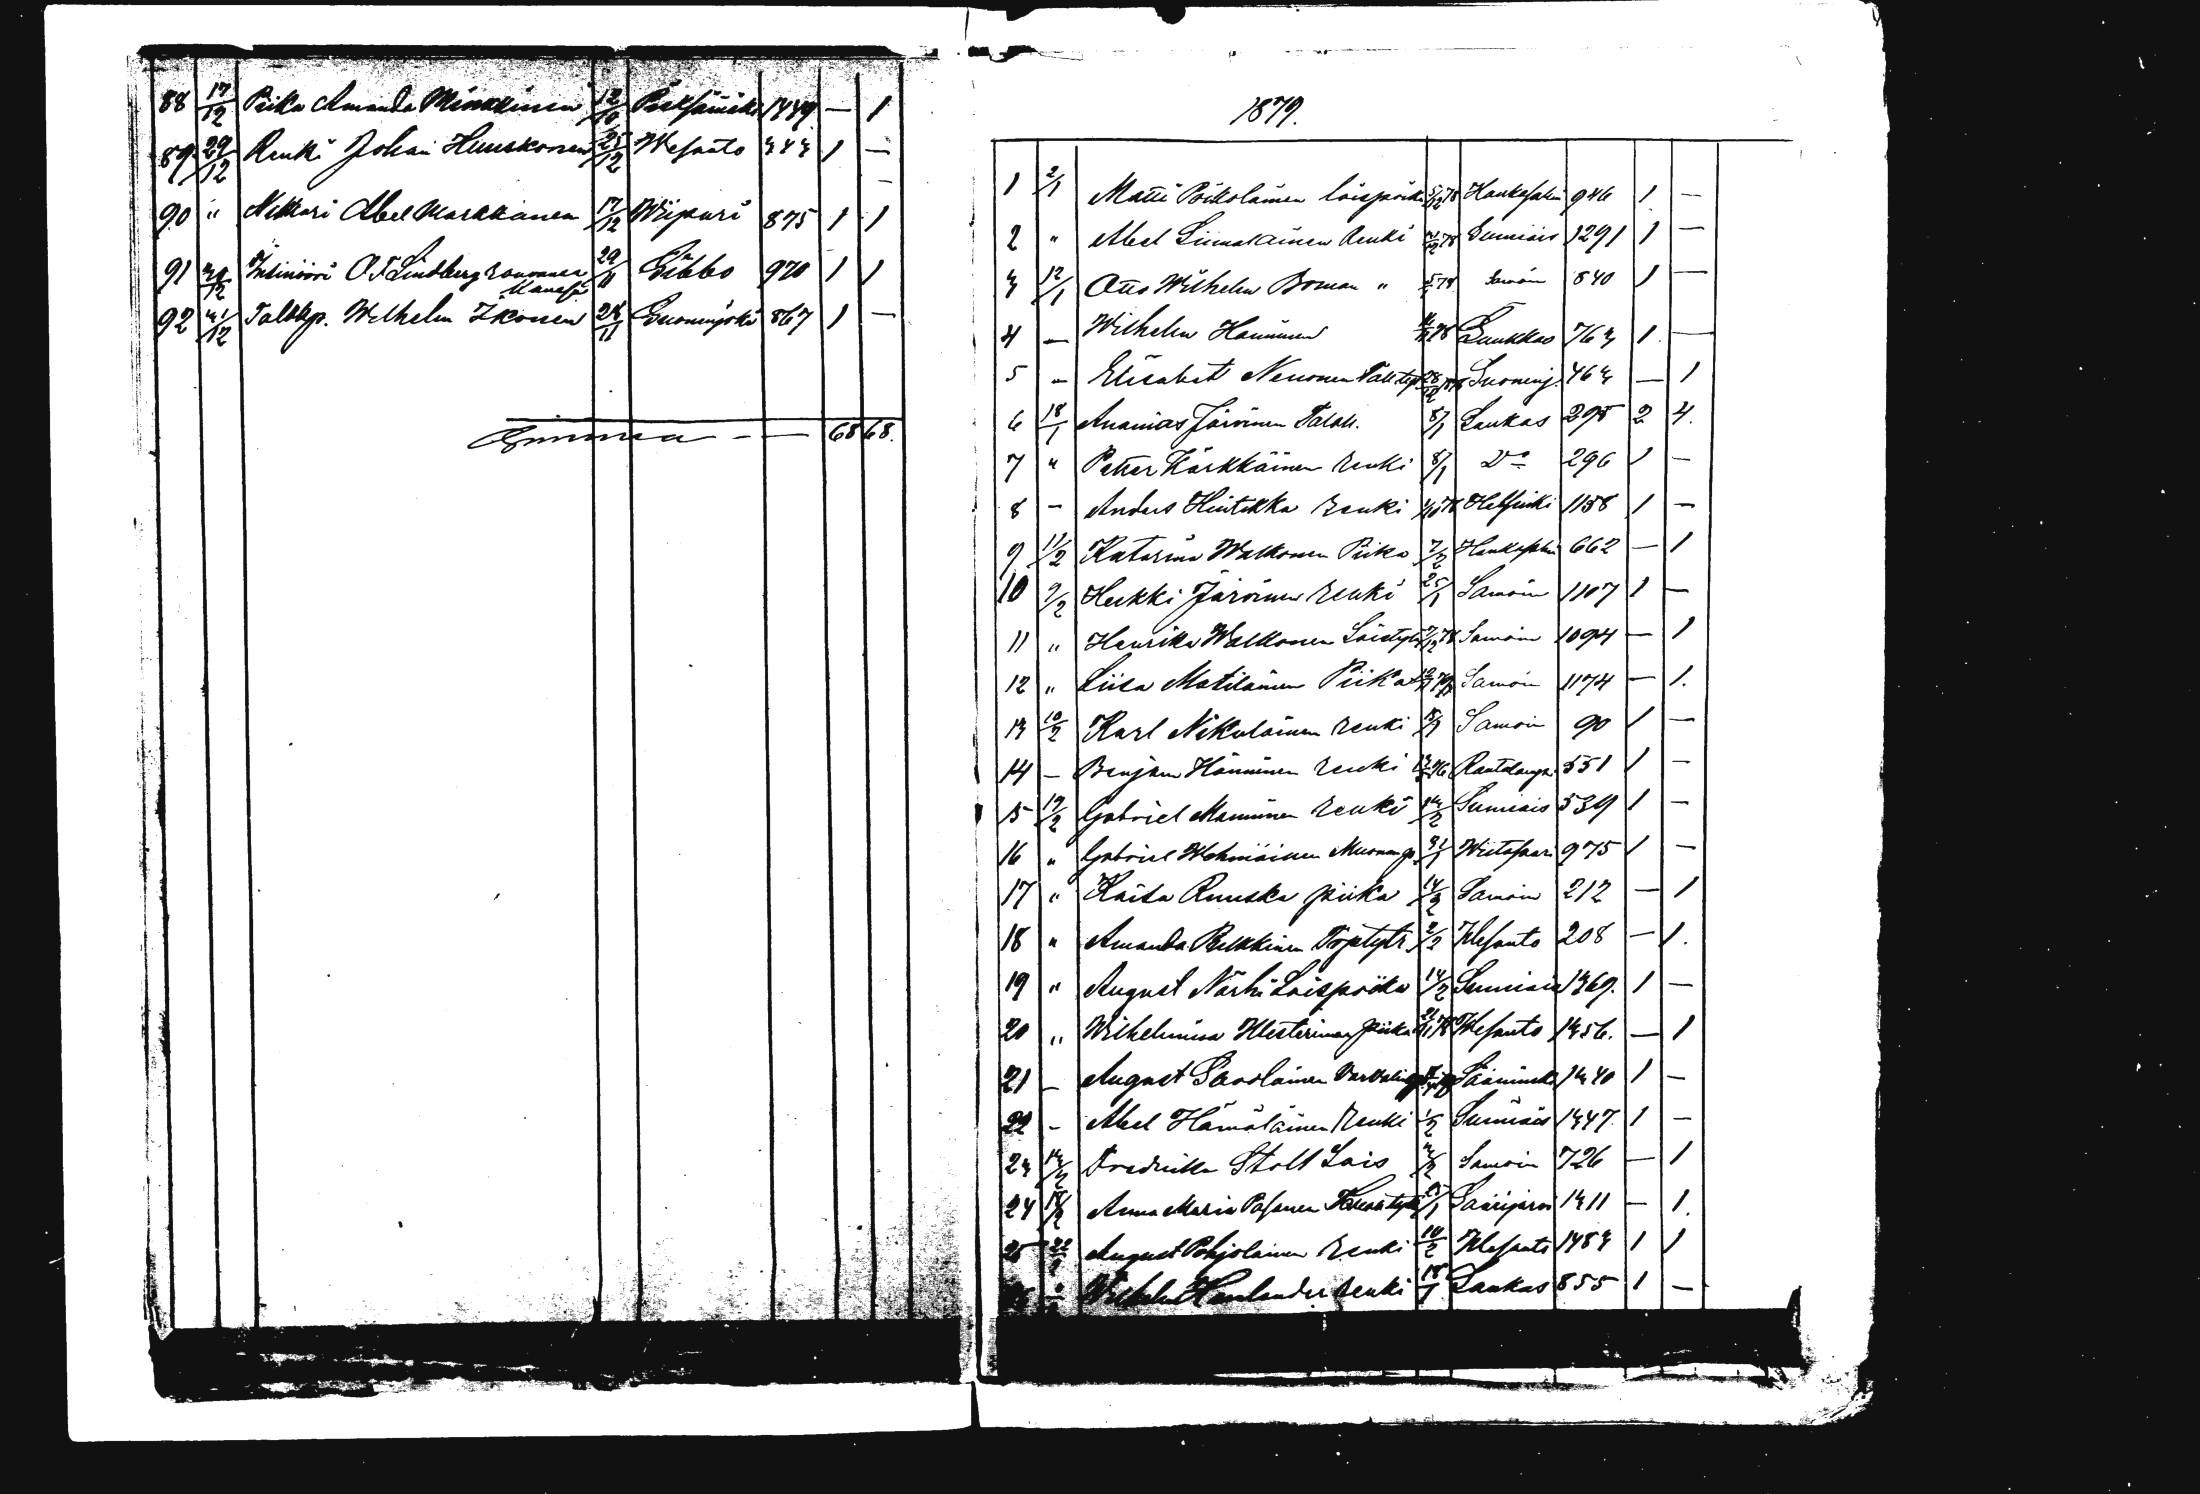 88 17/12 Piika Amanda Minkkinen 12/10 Pieksämäki 1449 — 1
89 29/12 Renki Johan Huuskonen 25/12 Wesanto 443 1 —
90 " Nikkari Abel Markkanen 17/12 Wiipuri 875 1 1
91 30/12 Insinööri O F Lindberg rouvansa 29/11 Sibbo 970 1 1
Kanssa
92 31/12 Talokp. Wilhelm Ikonen 24/11 Suoninjoki 867 1 —
Summa — — 68 68.
1879.
1 2/1 Matti Poikolainen loispoika 5/12 78 Hankasalmi 946 1 —
2 " Abel Liimatainen Renki 78 Sumiais 1291 1 —
3 12/1 Otto Wilhelm Boman " 78 Samoin 840 1 —
4 — Wilhelm Hänninen 78 Laukkas 763 1 —
5 " Elisabet Nenonen 28/12 Suoninj. 463 — 1
6 18/1 Ananias Järvinen Talok. 8/1 Laukas 295 2 4.
7 " Petter Kärkkäinen renki 8/1 Do 296 1 —
8 — Anders Hintikka renki 78 Helsinki 1158 1 —
9 11/2 Katarina Walkonen Piika 7/2 Hankasalmi 662 — 1
10 9/2 Heikki Järvinen renki 25/1 Samoin 1107 1 —
11 " Henrika Walkonen Loistytär 7/12 78 Samoin 1094 — 1
12 " Liisa Matilainen Piika Samoin 1174 — 1.
13 10/2 Karl Nikulainen renki 18/1 Samoin 90 1 —
14 — Benjam Hänninen renki 76 Rautalampi 551 1 —
15 19/2 Gabriel Manninen renki 14/2 Sumiais 539 1 —
16 " Gabriel Wehmäinen 31/1 Wiitasaari 975 1 —
17 " Kaisa Ruuska piika 14/2 Samoin 212 — 1
18 " Amanda Pelkkinen 2/2 Wesanto 208 — 1.
19 " August Närhi Loispoika 14/2 Sumiais 1369. 1 —
20 " Wilhelmina Westerinen piika 78 Wesanto 1356. — 1
21 — August Savolainen Sääminki 1340 1 —
22 — Abel Hämäläinen Renki 1/2 Sumiais 1347. 1 —
23 14/2 Fredrika Stoll Lois 3/2 Samoin 726 — 1
24 18/2 Anna Maria Pasanen Saarijärvi 1311 — 1.
25 22/2 August Pohjolainen renki 10/2 Wesanto 1483 1 1
" Wilhelm renki 18/1 Laukas 855 1 —